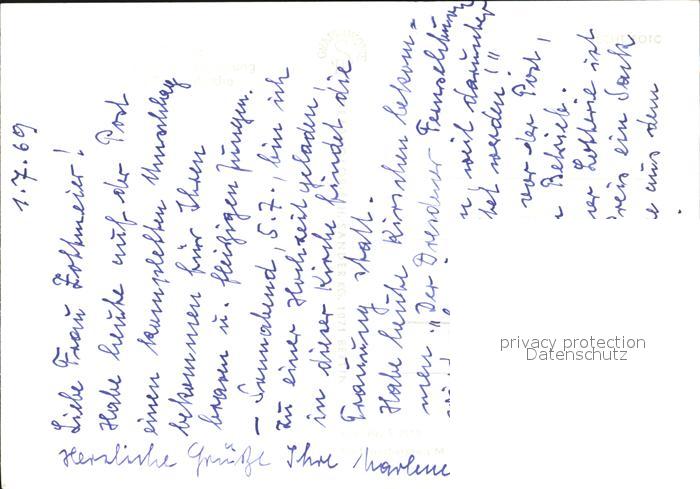 1.7.69
Liebe Frau Zottmeier!
Habe heute auf der Post
einen kompletten Umschlag
bekommen für Ihren
braven u. fleißigen Jungen.
– Sonnabend, 5.7., bin ich
zu einer Hochzeit geladen,
in dieser Kirche findet die
Trauung statt.
Habe heute Kirschen bekom-
men. „Der Dresdener Fernsehturm
weil darunter
tet werden!"
vor der Post,
Betrieb.
er Lotterie ist
reis ein Sack
e aus dem
Herzliche Grüße Ihre Marlene
privacy protection
Datenschutz